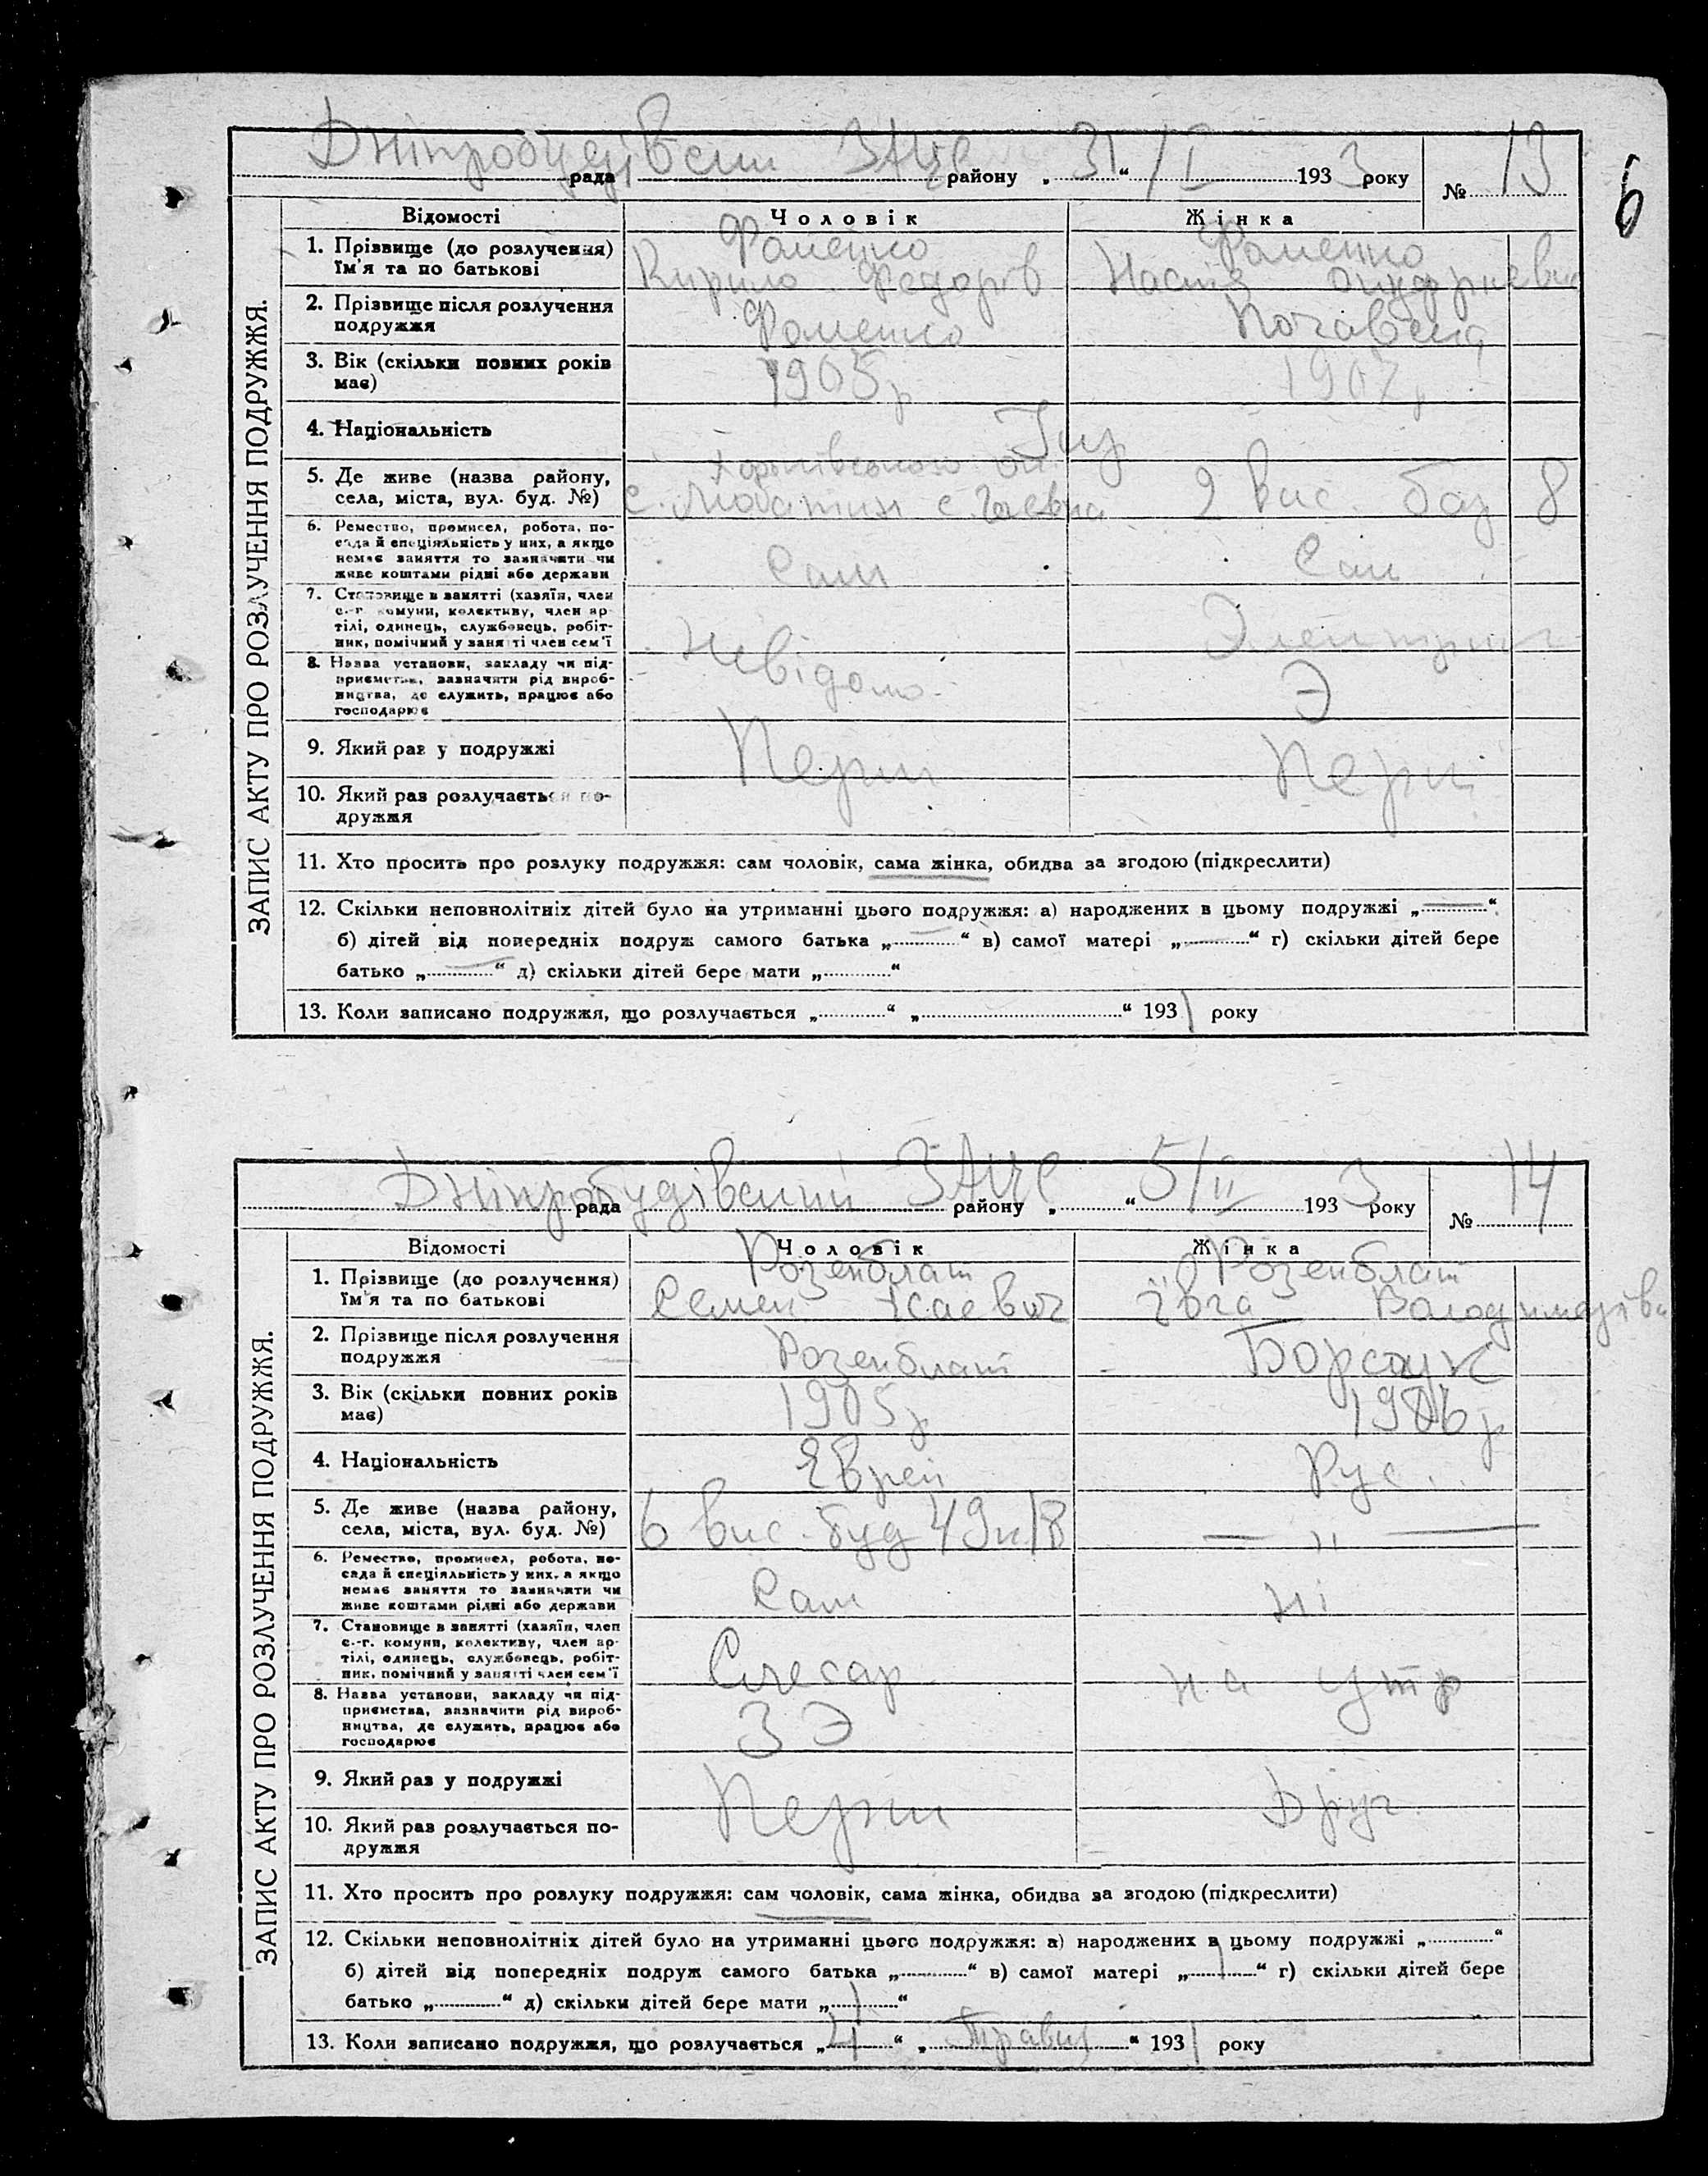 6
Дніпробудівськи рада ЗАЦС району „31“ /I 1933 року № 13
ЗАПИС АКТУ ПРО РОЗЛУЧЕННЯ ПОДРУЖЖЯ.
Відомості Чоловік Жінка
1. Прізвище (до розлучення) Фоменко Фоменко
Ім'я та по батькові Кирило Федорів Настя
2. Прізвище після розлучення
подружжя Фоменко
3. Вік (скільки повних років
має) 1905 р 1907 р
4. Національність Укр
5. Де живе (назва району, Харківської
села, міста, вул. буд. №) с. Люботин с. 2 вис. 8
6. Ремество, промисел, робота, по-
сада й спеціяльність у них, а якщо
немає заняття то зазначити чи
живе коштами рідні або держави Сам Сам
7. Становище в занятті (хазяїн, член
с.-г. комуни, колективу, член ар-
тілі, одинець, службовець, робіт-
ник, помічний у занятті член сем'ї Невідомо
8. Назва установи, закладу чи під-
приємства, зазначити рід вироб-
ництва, де служить, працює або
господарює Э
9. Який раз у подружжі Перш Перш
10. Який раз розлучається по-
дружжя
11. Хто просить про розлуку подружжя: сам чоловік, сама жінка, обидва за згодою (підкреслити)
12. Скільки неповнолітніх дітей було на утриманні цього подружжя: а) народжених в цьому подружжі „—“
б) дітей від попередніх подруж самого батька „—“ в) самої матері „—“ г) скільки дітей бере
батько „—“ д) скільки дітей бере мати „“
13. Коли записано подружжя, що розлучається „“ „“ 1931 року
Дніпробудівський рада ЗАЦС району „5/II“ 1933 року № 14
ЗАПИС АКТУ ПРО РОЗЛУЧЕННЯ ПОДРУЖЖЯ.
Відомості Чоловік Жінка
1. Прізвище (до розлучення) Розенблат Розенблат
Ім'я та по батькові Семен Ісаевич Володимирівн
2. Прізвище після розлучення
подружжя Розенблат Борсук
3. Вік (скільки повних років
має) 1905 р 1906 р
4. Національність Еврей Рус.
5. Де живе (назва району,
села, міста, вул. буд. №) 6 вис. буд 49 к 18 — „ —
6. Ремество, промисел, робота, по-
сада й спеціяльність у них, а якщо
немає заняття то зазначити чи
живе коштами рідні або держави Сам Ні
7. Становище в занятті (хазяїн, член
с.-г. комуни, колективу, член ар-
тілі, одинець, службовець, робіт-
ник, помічний у занятті член сем'ї Слесар на утр
8. Назва установи, закладу чи під-
приємства, зазначити рід вироб-
ництва, де служить, працює або
господарює З Э
9. Який раз у подружжі Перш Друг
10. Який раз розлучається по-
дружжя
11. Хто просить про розлуку подружжя: сам чоловік, сама жінка, обидва за згодою (підкреслити)
12. Скільки неповнолітніх дітей було на утриманні цього подружжя: а) народжених в цьому подружжі „“
б) дітей від попередніх подруж самого батька „“ в) самої матері „1“ г) скільки дітей бере
батько „“ д) скільки дітей бере мати „1“
13. Коли записано подружжя, що розлучається „4“ „Травня“ 1931 року